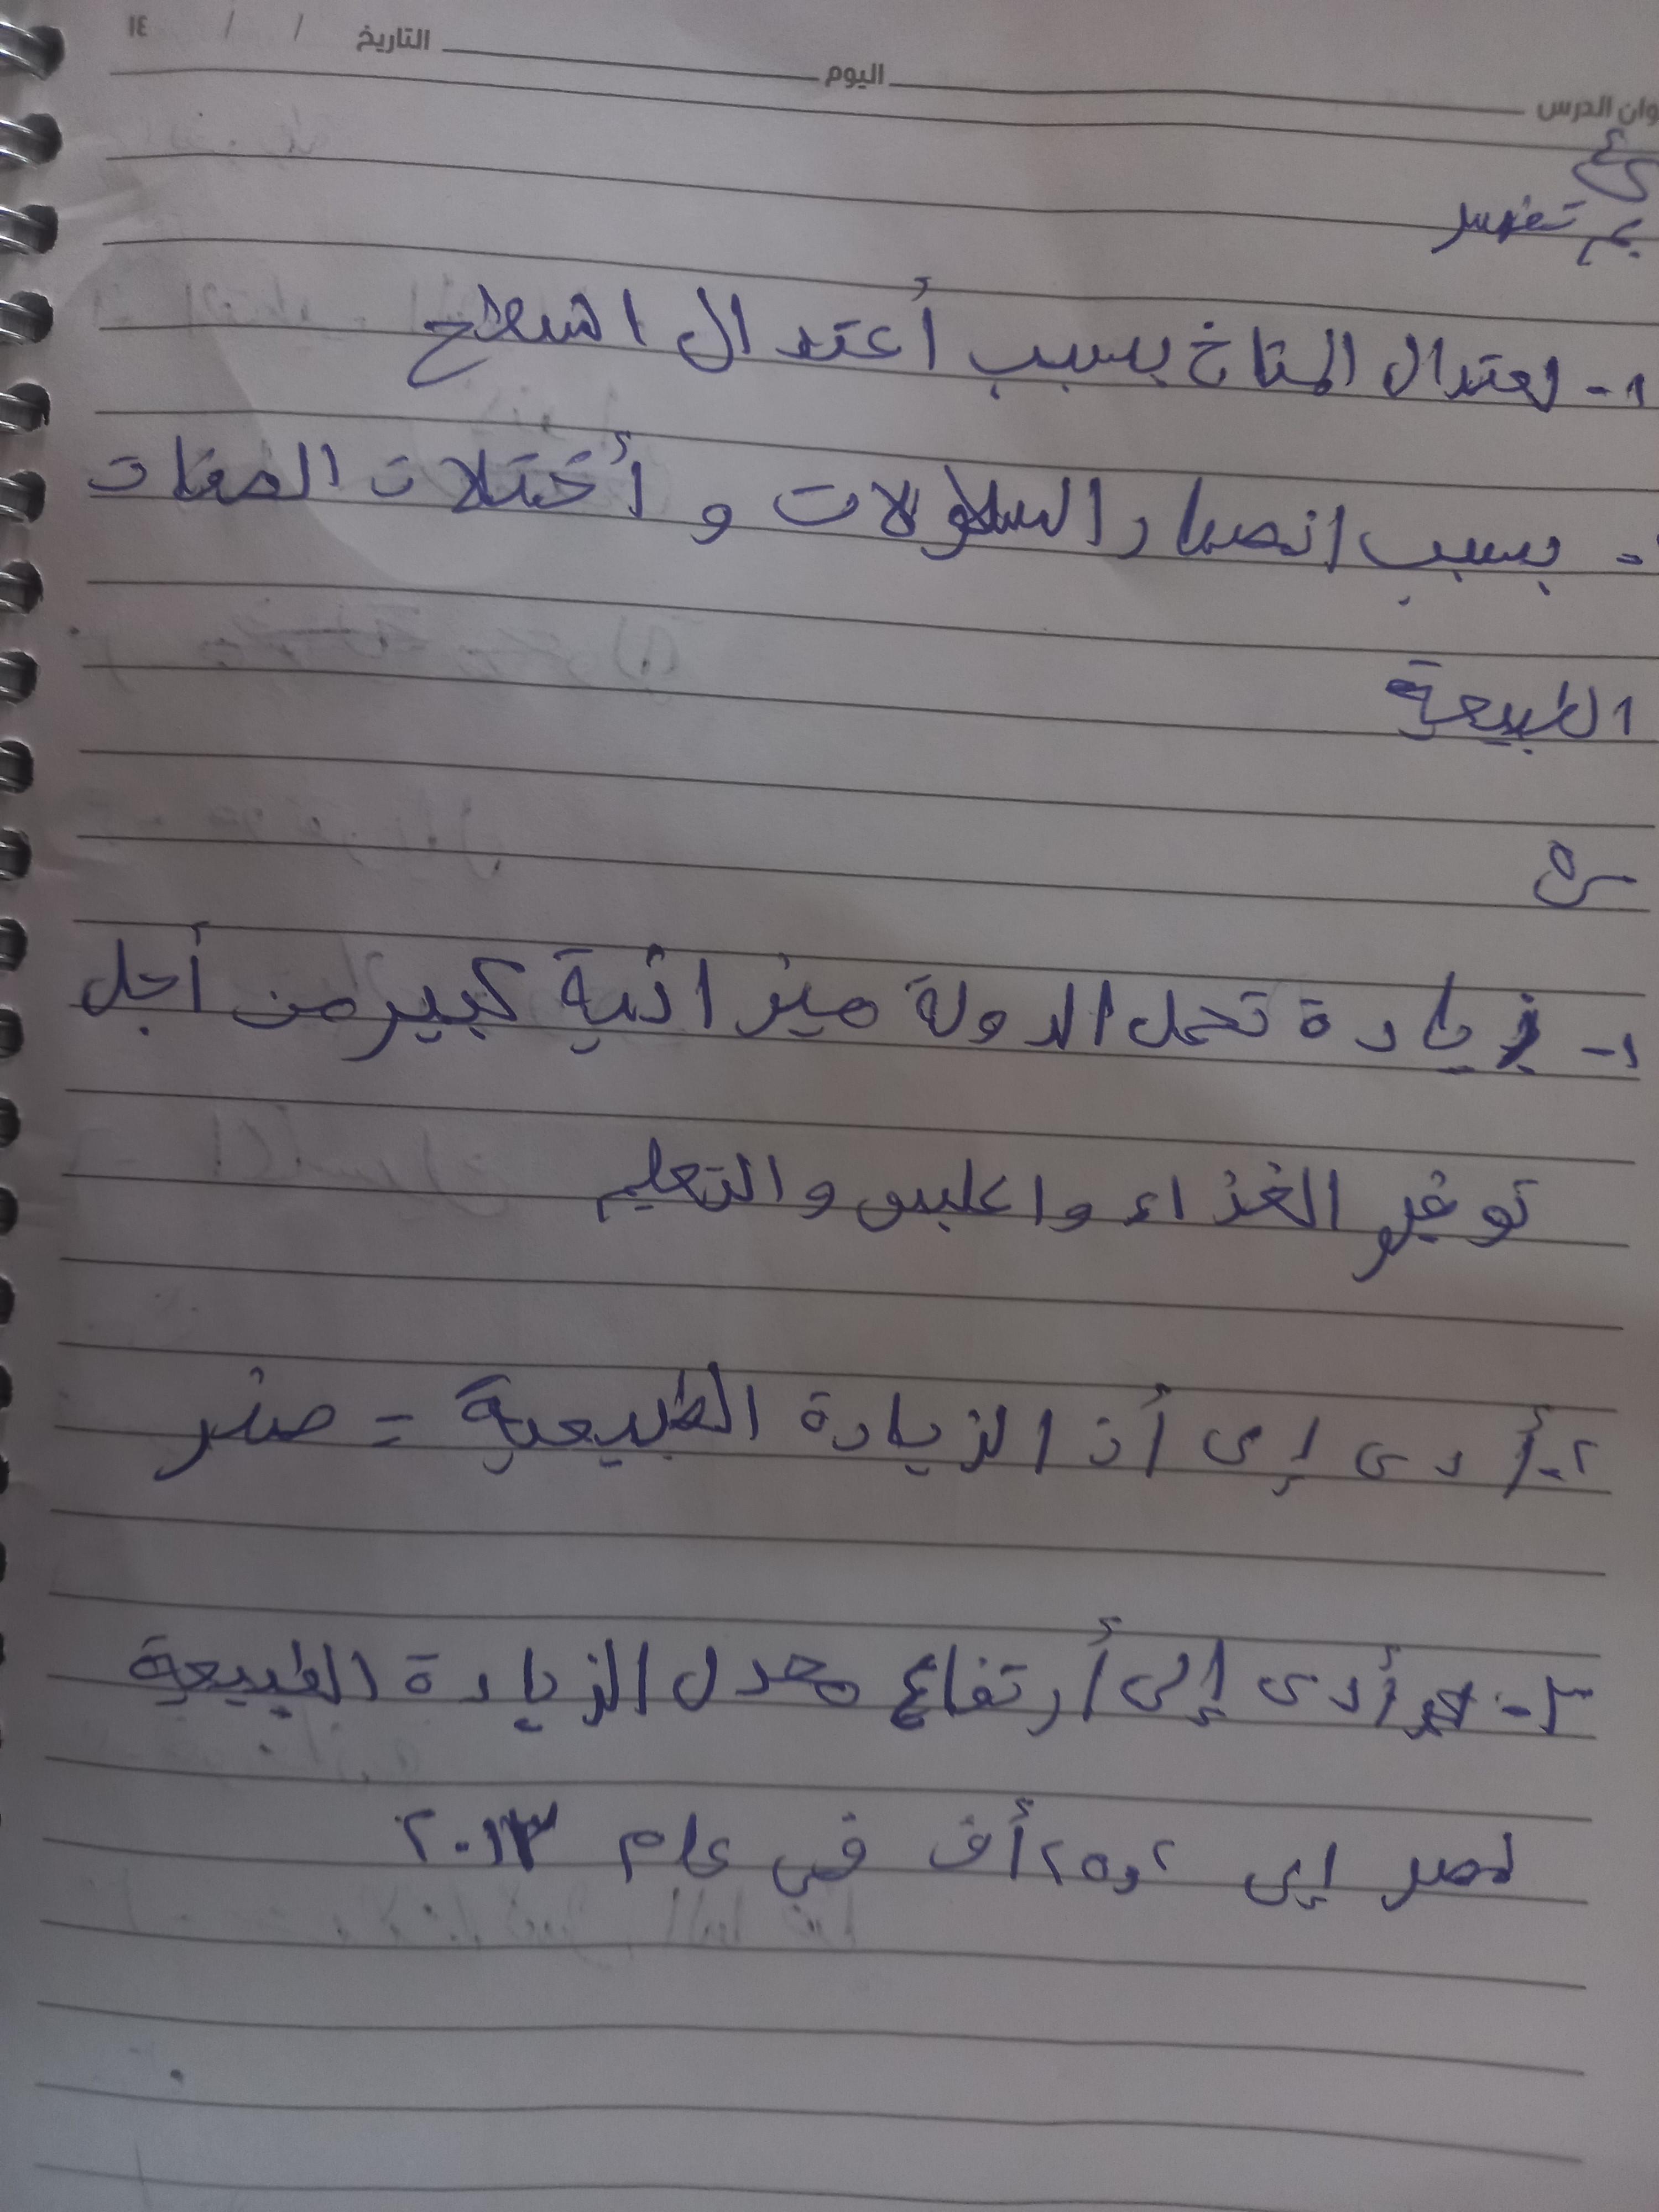 وان الدرس اليوم التاريخ / / ١٤
س٤
بم تفسر
١- لعتدال المناخ بسبب أعتدال السطح
- بسبب انصهار السلالات و أختلات الصفات
الطبيعية
س٥
١- زيادة تحمل الدولة ميزانية كبير من أجل
توفير الغذاء واعلبس والتعليم
٢- أدى إلى أن الزيادة الطبيعية = صفر
٣- أدى إلى أرتفاع معدل الزيادة الطبيعية
لمصر إلى ٢٥٫٢ أف في عام ٢٠١٣